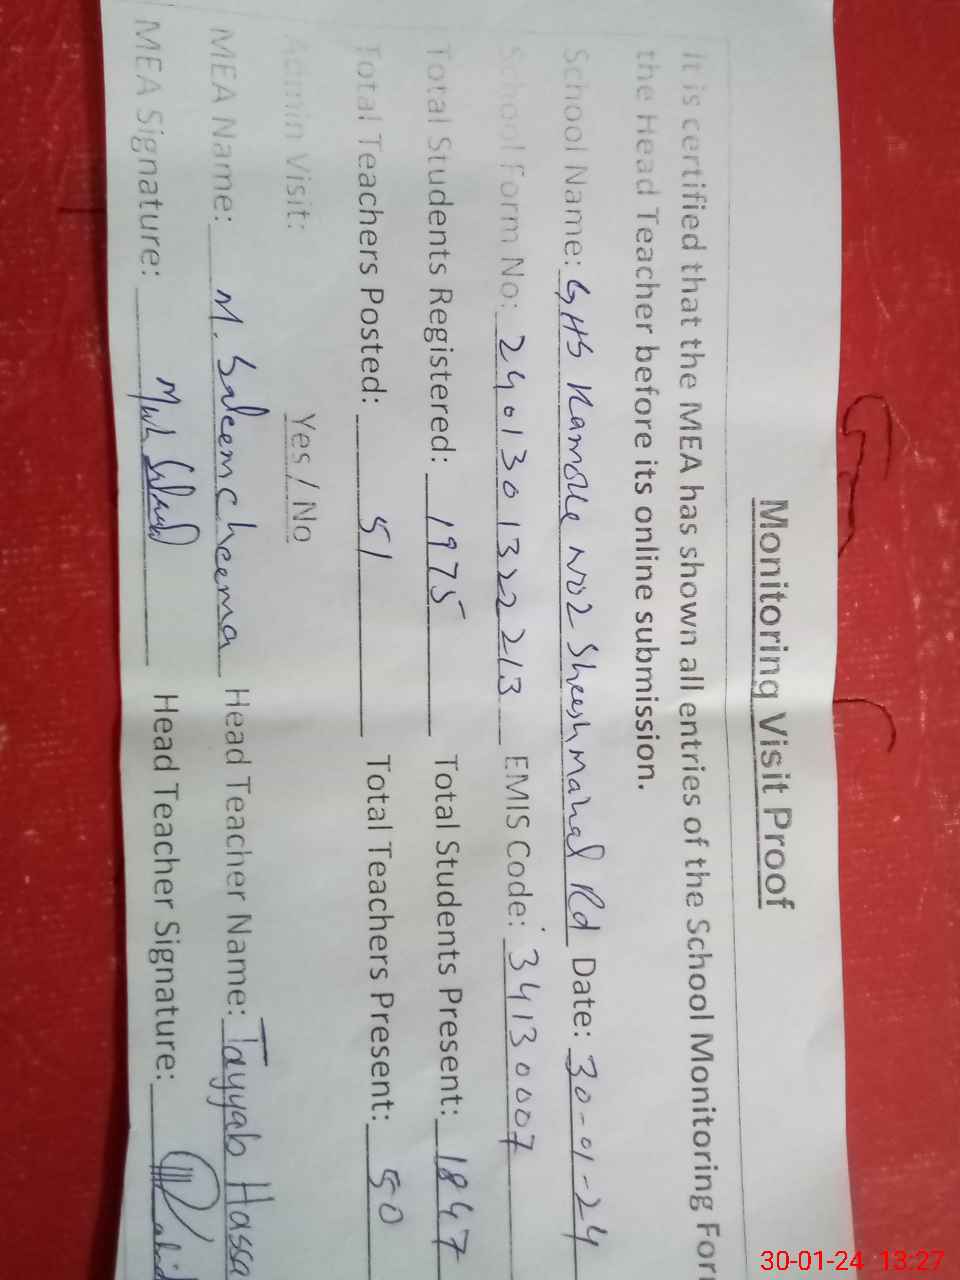 Monitoring Visit Proof
It is certified that the MEA has shown all entries of the School Monitoring For
the Head Teacher before its online submission.
School Name: GHS Kamoke No2 Sheesh Mahal Rd Date: 30-01-24
School Form No: 2401301322213 EMIS Code: 34130007
Total Students Registered: 1975 Total Students Present: 1847
Total Teachers Posted: 51 Total Teachers Present: 50
Admin Visit: Yes / No
MEA Name: M. Saleem cheema Head Teacher Name: Tayyab Hassa
MEA Signature: Head Teacher Signature:
30-01-24 13:27